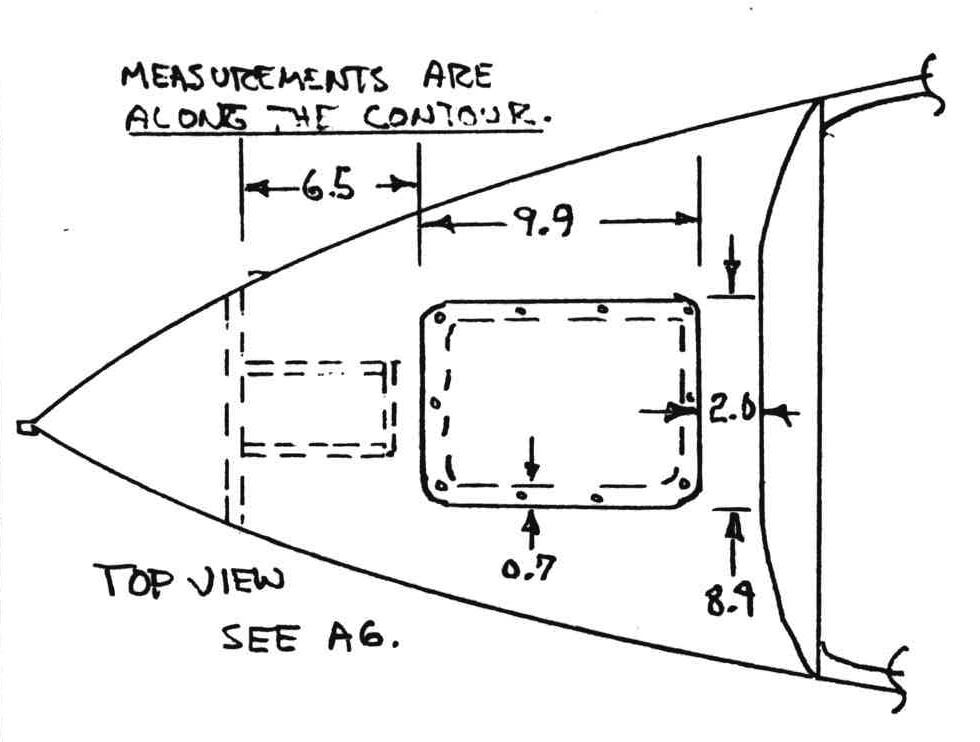 MEASUREMENTS ARE
ALONG THE CONTOUR.
6.5
9.9
2.0
0.7
8.9
TOP VIEW
SEE A6.